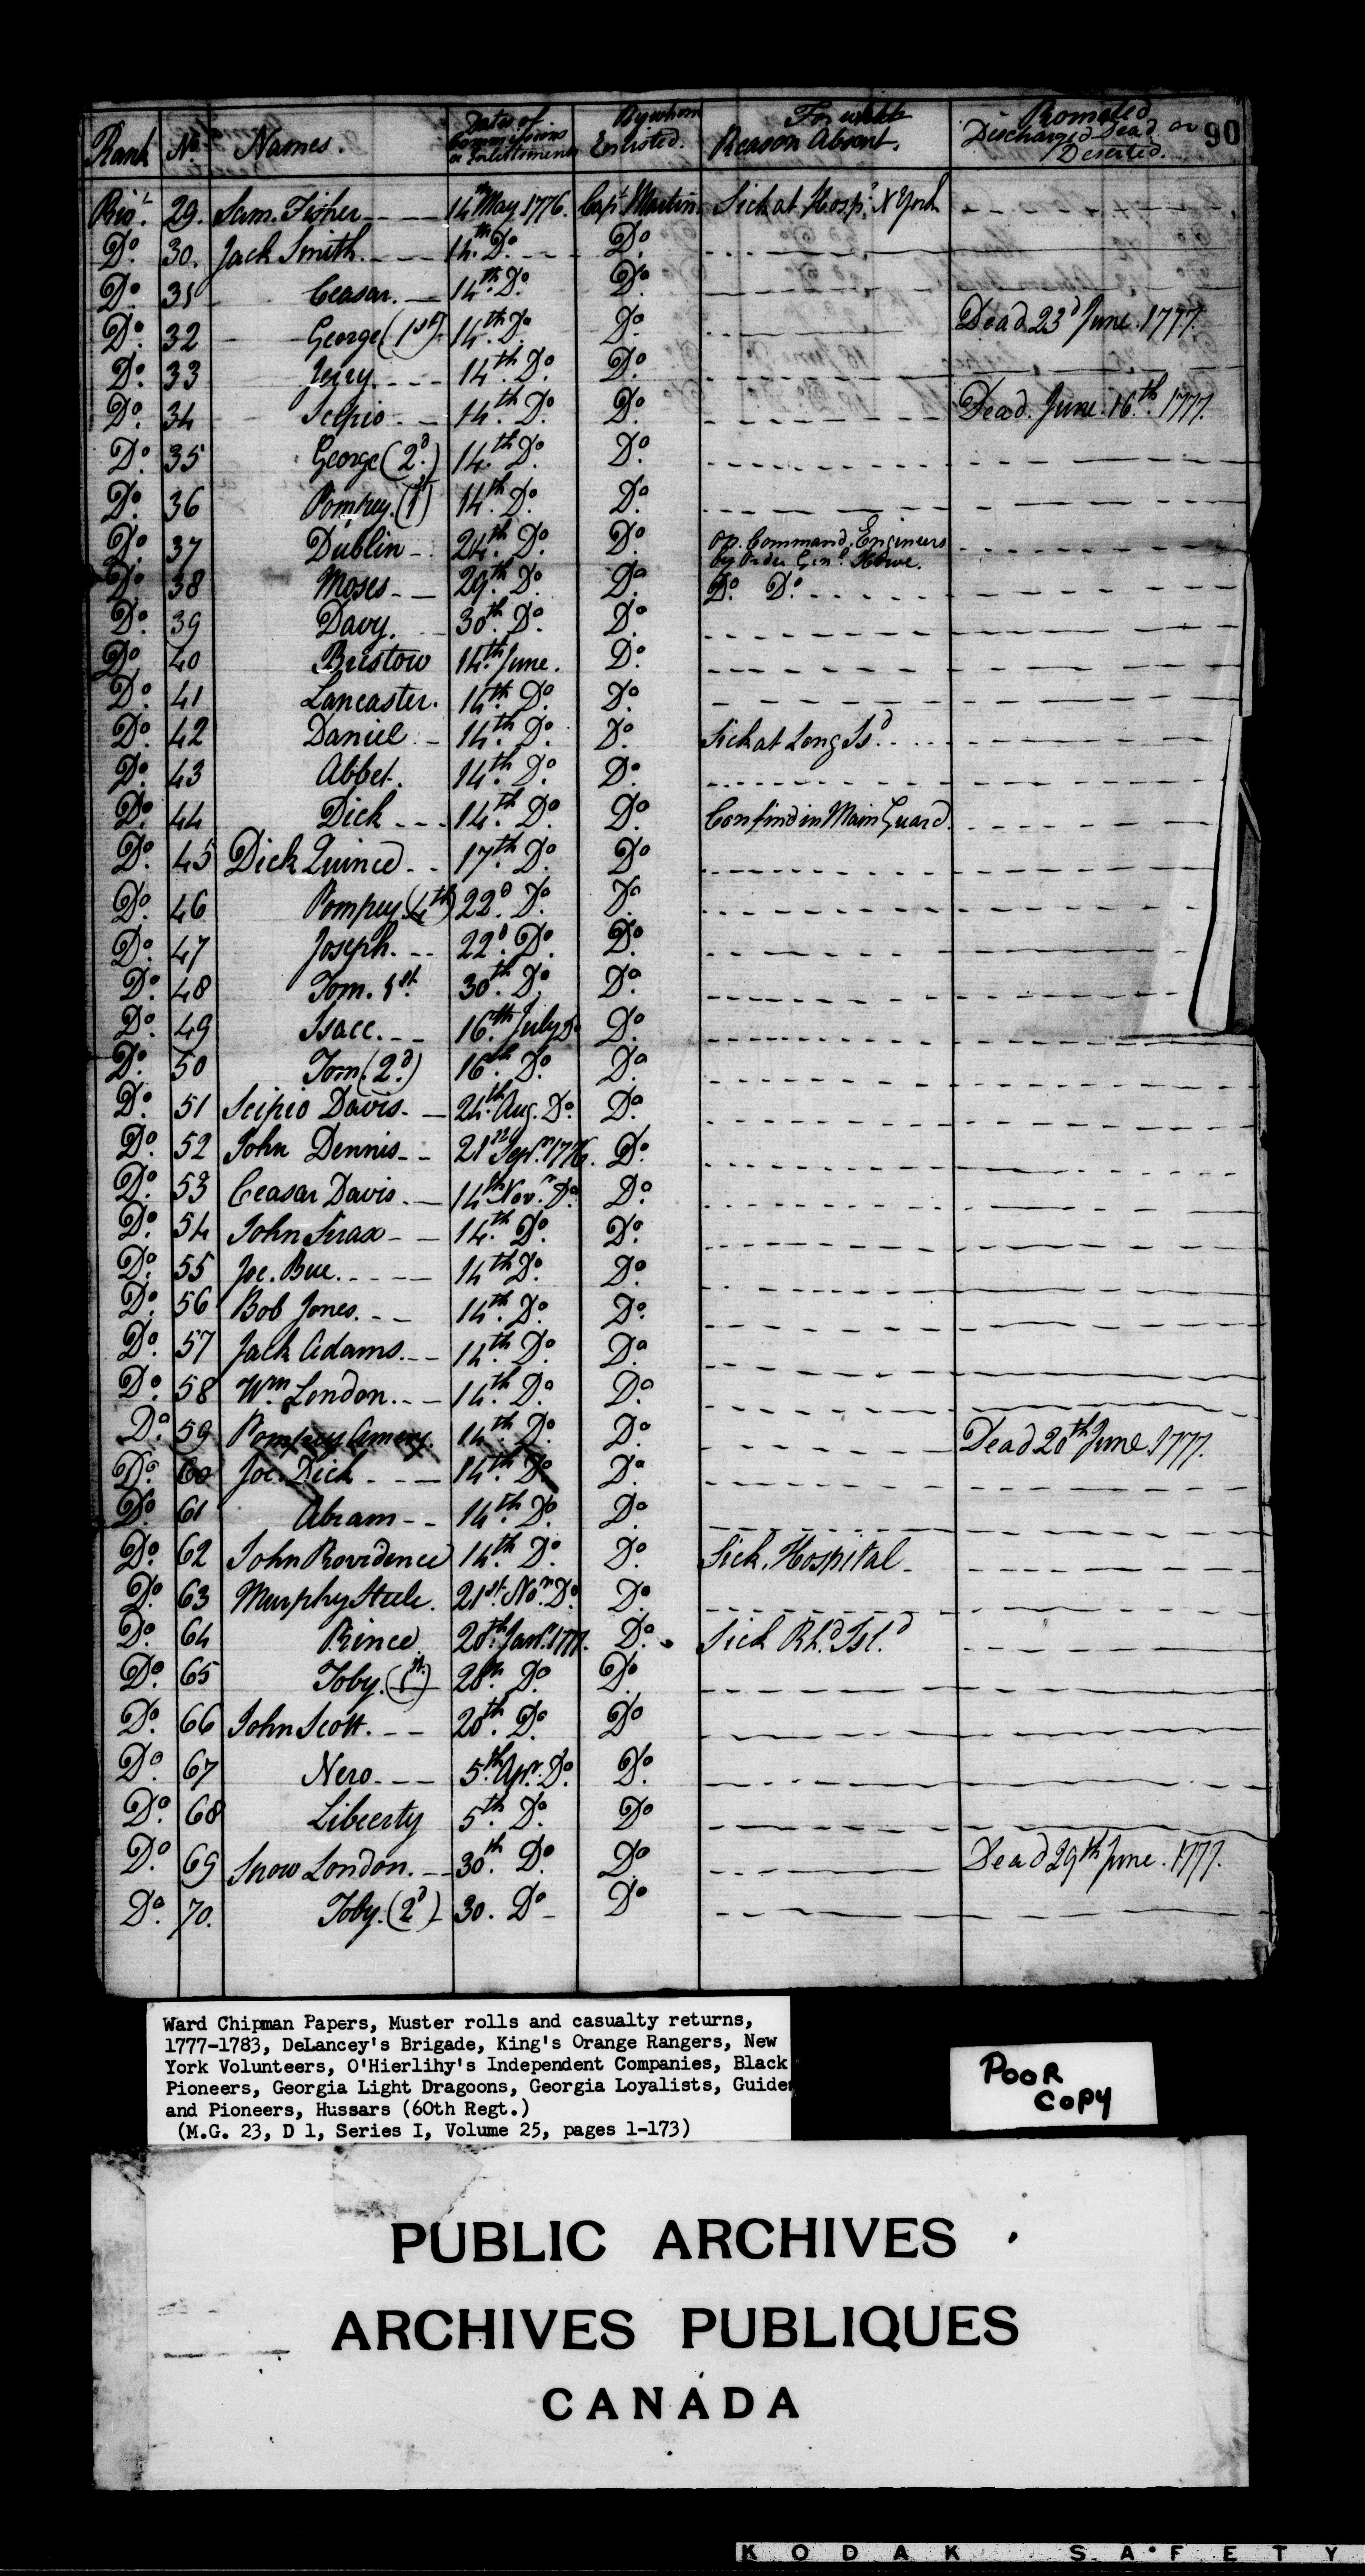 Rank No. Names. Dates of Commissions or Inlistments By whom Enlisted. For what Reason Absent. Promoted Discharged Dead or Deserted. 90
29. Sam. Fisher 14th May 1776. Capt. Martin Sick at Hospl. N York
Do. 30. Jack Smith 14th Do. Do.
Do. 31 Ceasar. 14th Do. Do.
Do. 32 George (1st) 14th Do. Do. Dead 23d June 1777.
Do. 33 14th Do. Do.
Do. 34 Scipio 14th Do. Do. Dead June 16th 1777.
Do. 35 George (2d.) 14th Do. Do.
Do. 36 Pompey. (1st) 14th Do. Do.
Do. 37 Dublin 24th Do. Do. on Command. Engineers by Order Genl. Howe.
Do. 38 Moses 29th Do. Do. Do. Do.
Do. 39 Davy. 30th Do. Do.
Do. 40 Bristow 14th June. Do.
Do. 41 Lancaster. 14th Do. Do.
Do. 42 Daniel 14th Do. Do. Sick at Long Isd.
Do. 43 Abbet. 14th Do. Do.
Do. 44 Dick 14th Do. Do. Confind in Main Guard.
Do. 45 Dick Quince 17th Do. Do.
Do. 46 Pompey (4th) 22d. Do. Do.
Do. 47 Joseph. 22d. Do. Do.
Do. 48 Tom. 1st. 30th Do. Do.
Do. 49 Isacc. 16th July Do Do.
Do. 50 Tom (2d.) 16th Do. Do.
Do. 51 Scipio Davis 24th Aug. Do. Do.
Do. 52 John Dennis 21st Sepr. 1776. Do.
Do. 53 Ceasar Davis 14th Novr. Do. Do.
Do. 54 John 14th Do. Do.
Do. 55 Joe. Bue. 14th Do. Do.
Do. 56 Bob Jones. 14th Do. Do.
Do. 57 Jack Adams. 14th Do. Do.
Do. 58 Wm. London. 14th Do. Do.
Do. 59 Pompey Amery. 14th Do. Do. Dead 20th June 1777.
Do. 60 Joe. Dick 14th Do. Do.
Do. 61 Abram 14th Do. Do.
Do. 62 John Providence 14th Do. Do. Sick. Hospital.
Do. 63 Murphy Steele. 21st. Nor. Do. Do.
Do. 64 Prince 20th Janr. 1777. Do. Sick Rhd. Isld.
Do. 65 Toby. (1st) 20th Do. Do.
Do. 66 John Scott. 20th Do. Do
Do. 67 Nero 5th Apr. Do. Do.
Do. 68 Libeerty 5th Do. Do
Do. 69 Snow London. 30th Do. Do. Dead 29th June. 1777.
Do. 70. Toby. (2d) 30. Do Do
Ward Chipman Papers, Muster rolls and casualty returns,
1777-1783, DeLancey's Brigade, King's Orange Rangers, New
York Volunteers, O'Hierlihy's Independent Companies, Black
Pioneers, Georgia Light Dragoons, Georgia Loyalists, Guides
and Pioneers, Hussars (60th Regt.)
(M.G. 23, D 1, Series I, Volume 25, pages 1-173)
POOR
COPY
PUBLIC ARCHIVES
ARCHIVES PUBLIQUES
CANADA
KODAK SAFETY